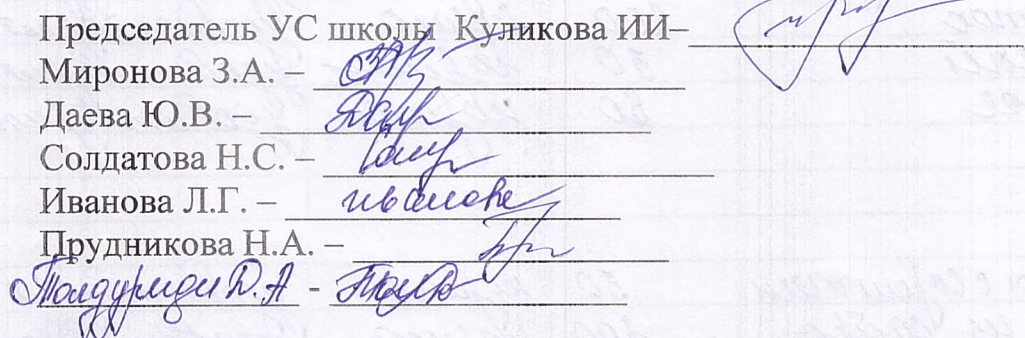 Председатель УС школы Куликова ИИ–
Миронова З.А. –
Даева Ю.В. –
Солдатова Н.С. –
Иванова Л.Г. – Иванова
Прудникова Н.А. –
Д.А -